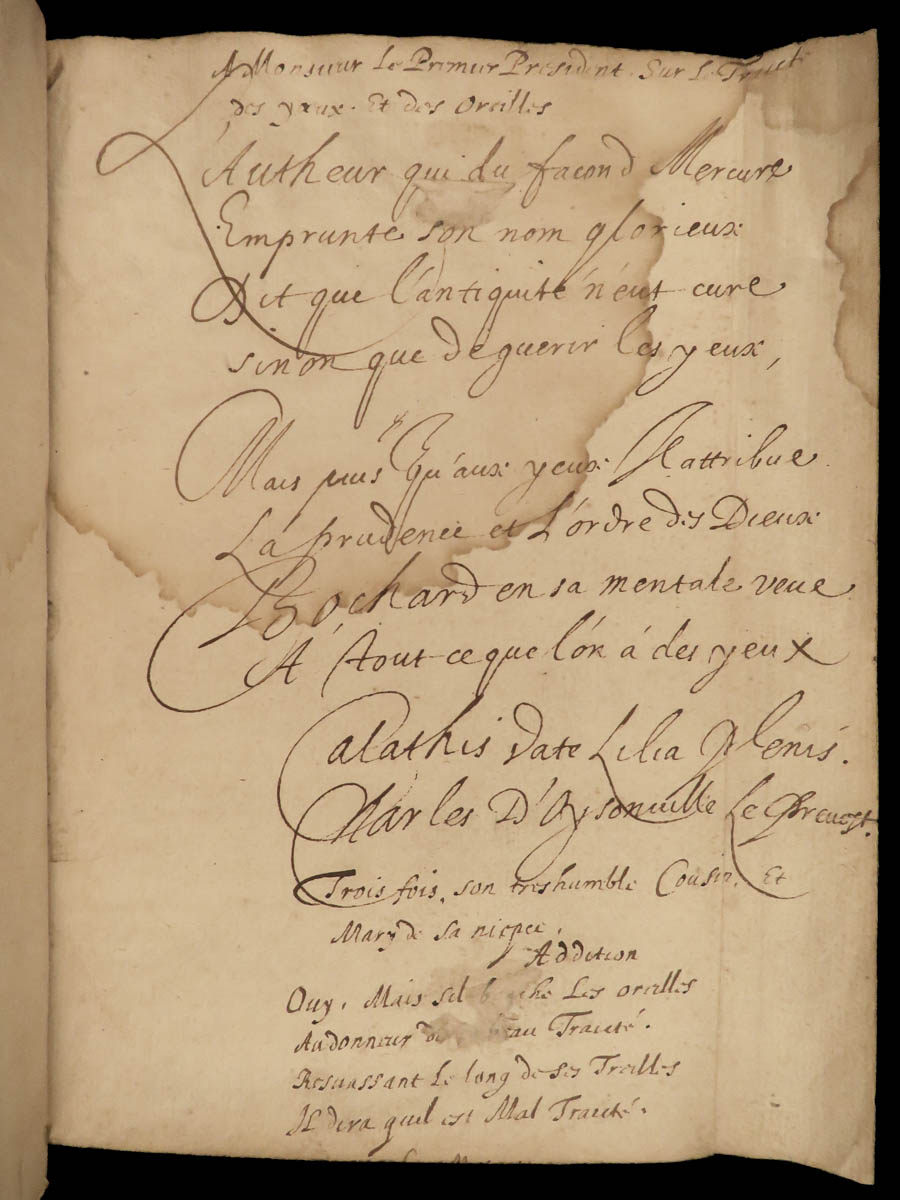 A Monsieur Le Premier President. Sur Le Traicté
des yeux. Et des Oreilles
L'Autheur qui du facond Mercure
Emprunte son nom glorieux
Dit que l'antiquité n'eut cure
sinon que de guerir les yeux,
Mais puis qu'aux yeux Il attribue
La prudence et L'ordre des Dieux
Bochard en sa mentale veue
A tout ce que l'on á des yeux
Calathis date Lilia Plenis.
Charles D'Aysonuille Le Preuost.
Trois fois, son tres humble Cousin, Et
Mary de sa niepce,
Addition
Ouy, Mais sil bouche Les oreilles
Au donneur de beau Traicté.
Resuassant Le long de ses Treilles
Il dira quil est Mal Traicté.